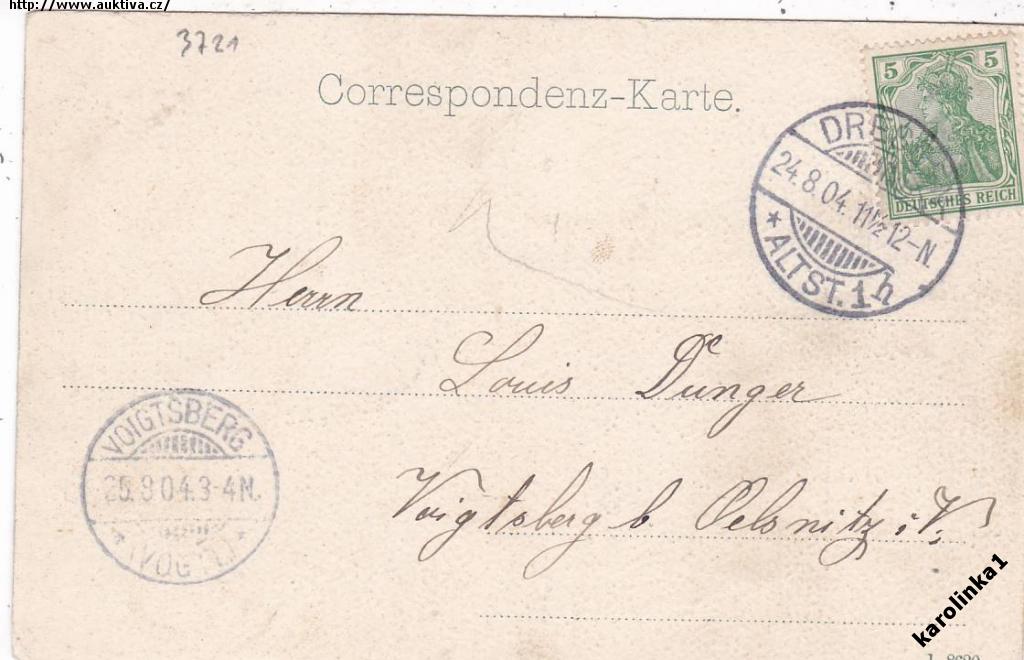 http://www.auktiva.cz/
3721
Correspondenz-Karte.
5 5
DEUTSCHES REICH
DRESDEN
24.8.04. 11½ 12-N
* ALTST. 1 h
Herrn
Louis Dunger
VOIGTSBERG
25.8.04. 3-4N.
* (VOGTL.) *
Voigtsberg b. Oelsnitz i. V.
karolinka1